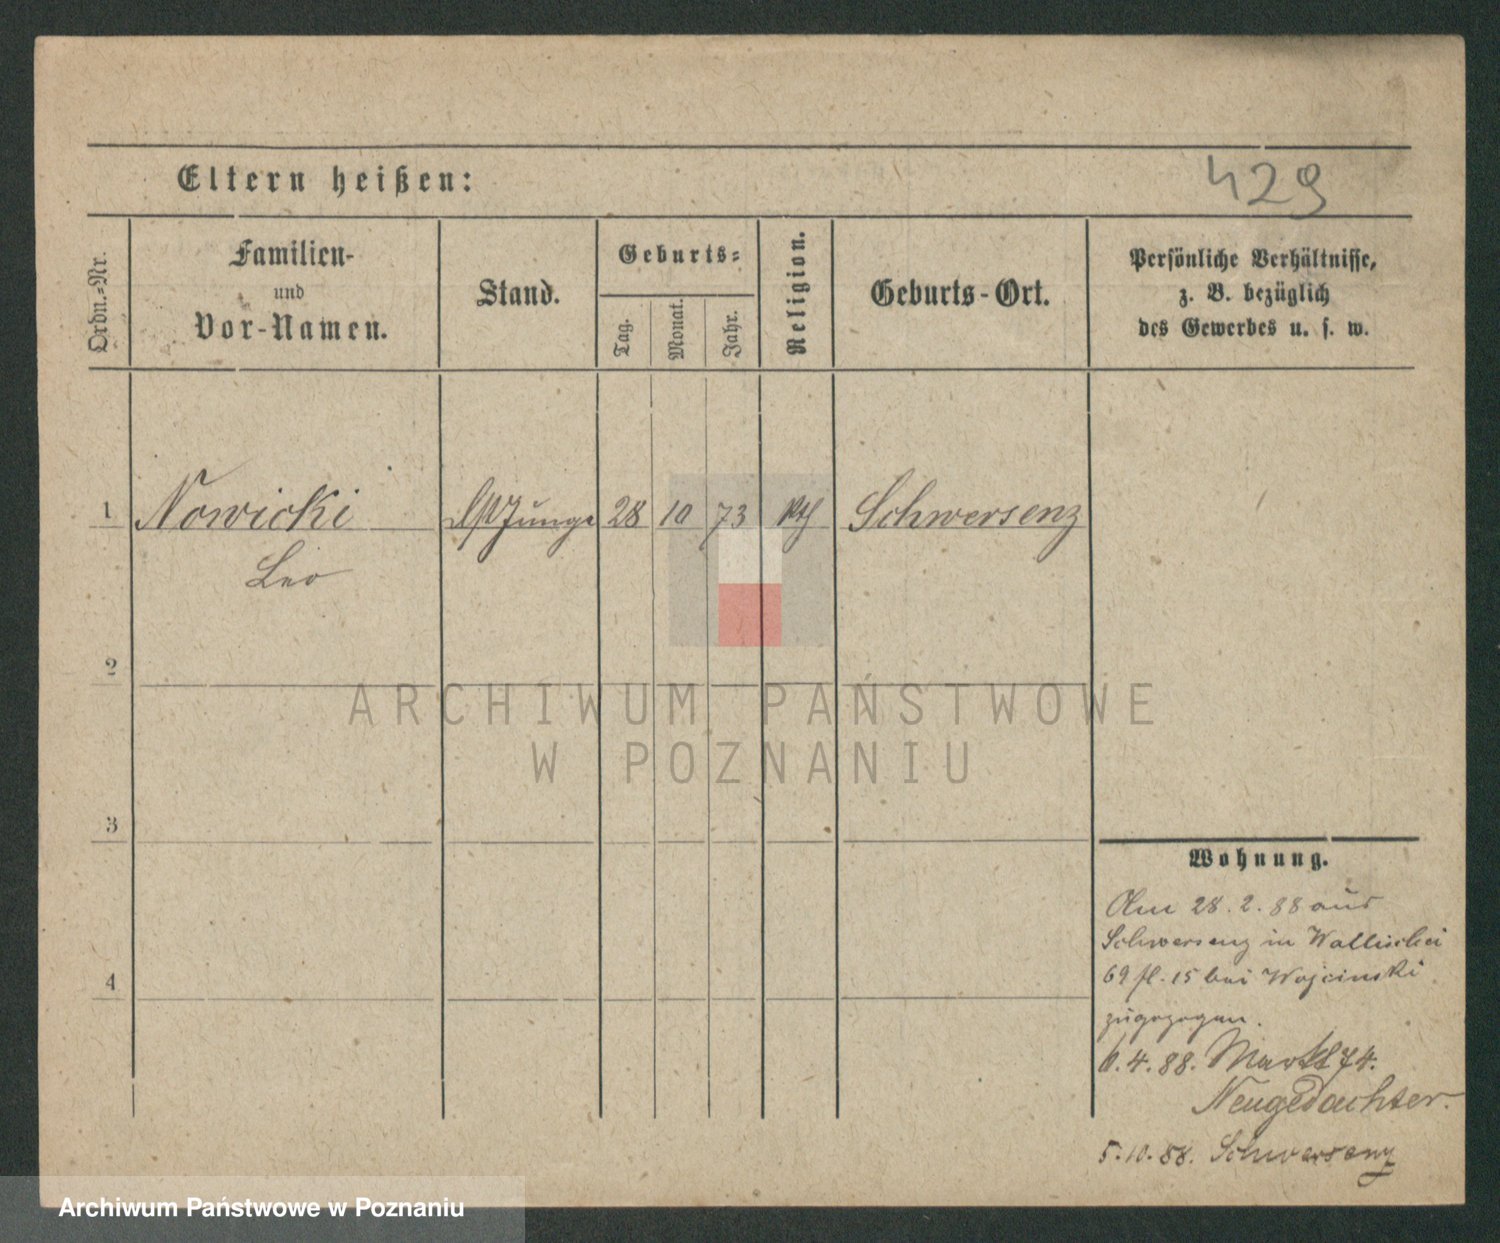 429
Eltern heißen:
Ordn.-Nr.
Familien-
und
Vor-Namen.
Stand.
Geburts-
Tag.
Monat.
Jahr.
Religion.
Geburts-Ort.
Persönliche Verhältnisse,
z. B. bezüglich
des Gewerbes u. s. w.
1 Nowicki Junge 28 10 73 kth Schwersenz
Leo
2
3
4
ARCHIWUM PAŃSTWOWE
W POZNANIU
Wohnung.
Am 28.2.88 aus
Schwersenz in Wallischei
69 fl. 15 bei Wojcinski
zugezogen.
.4.88. Markt 74.
Neugedachter.
5.10.88. Schwersenz
Archiwum Państwowe w Poznaniu